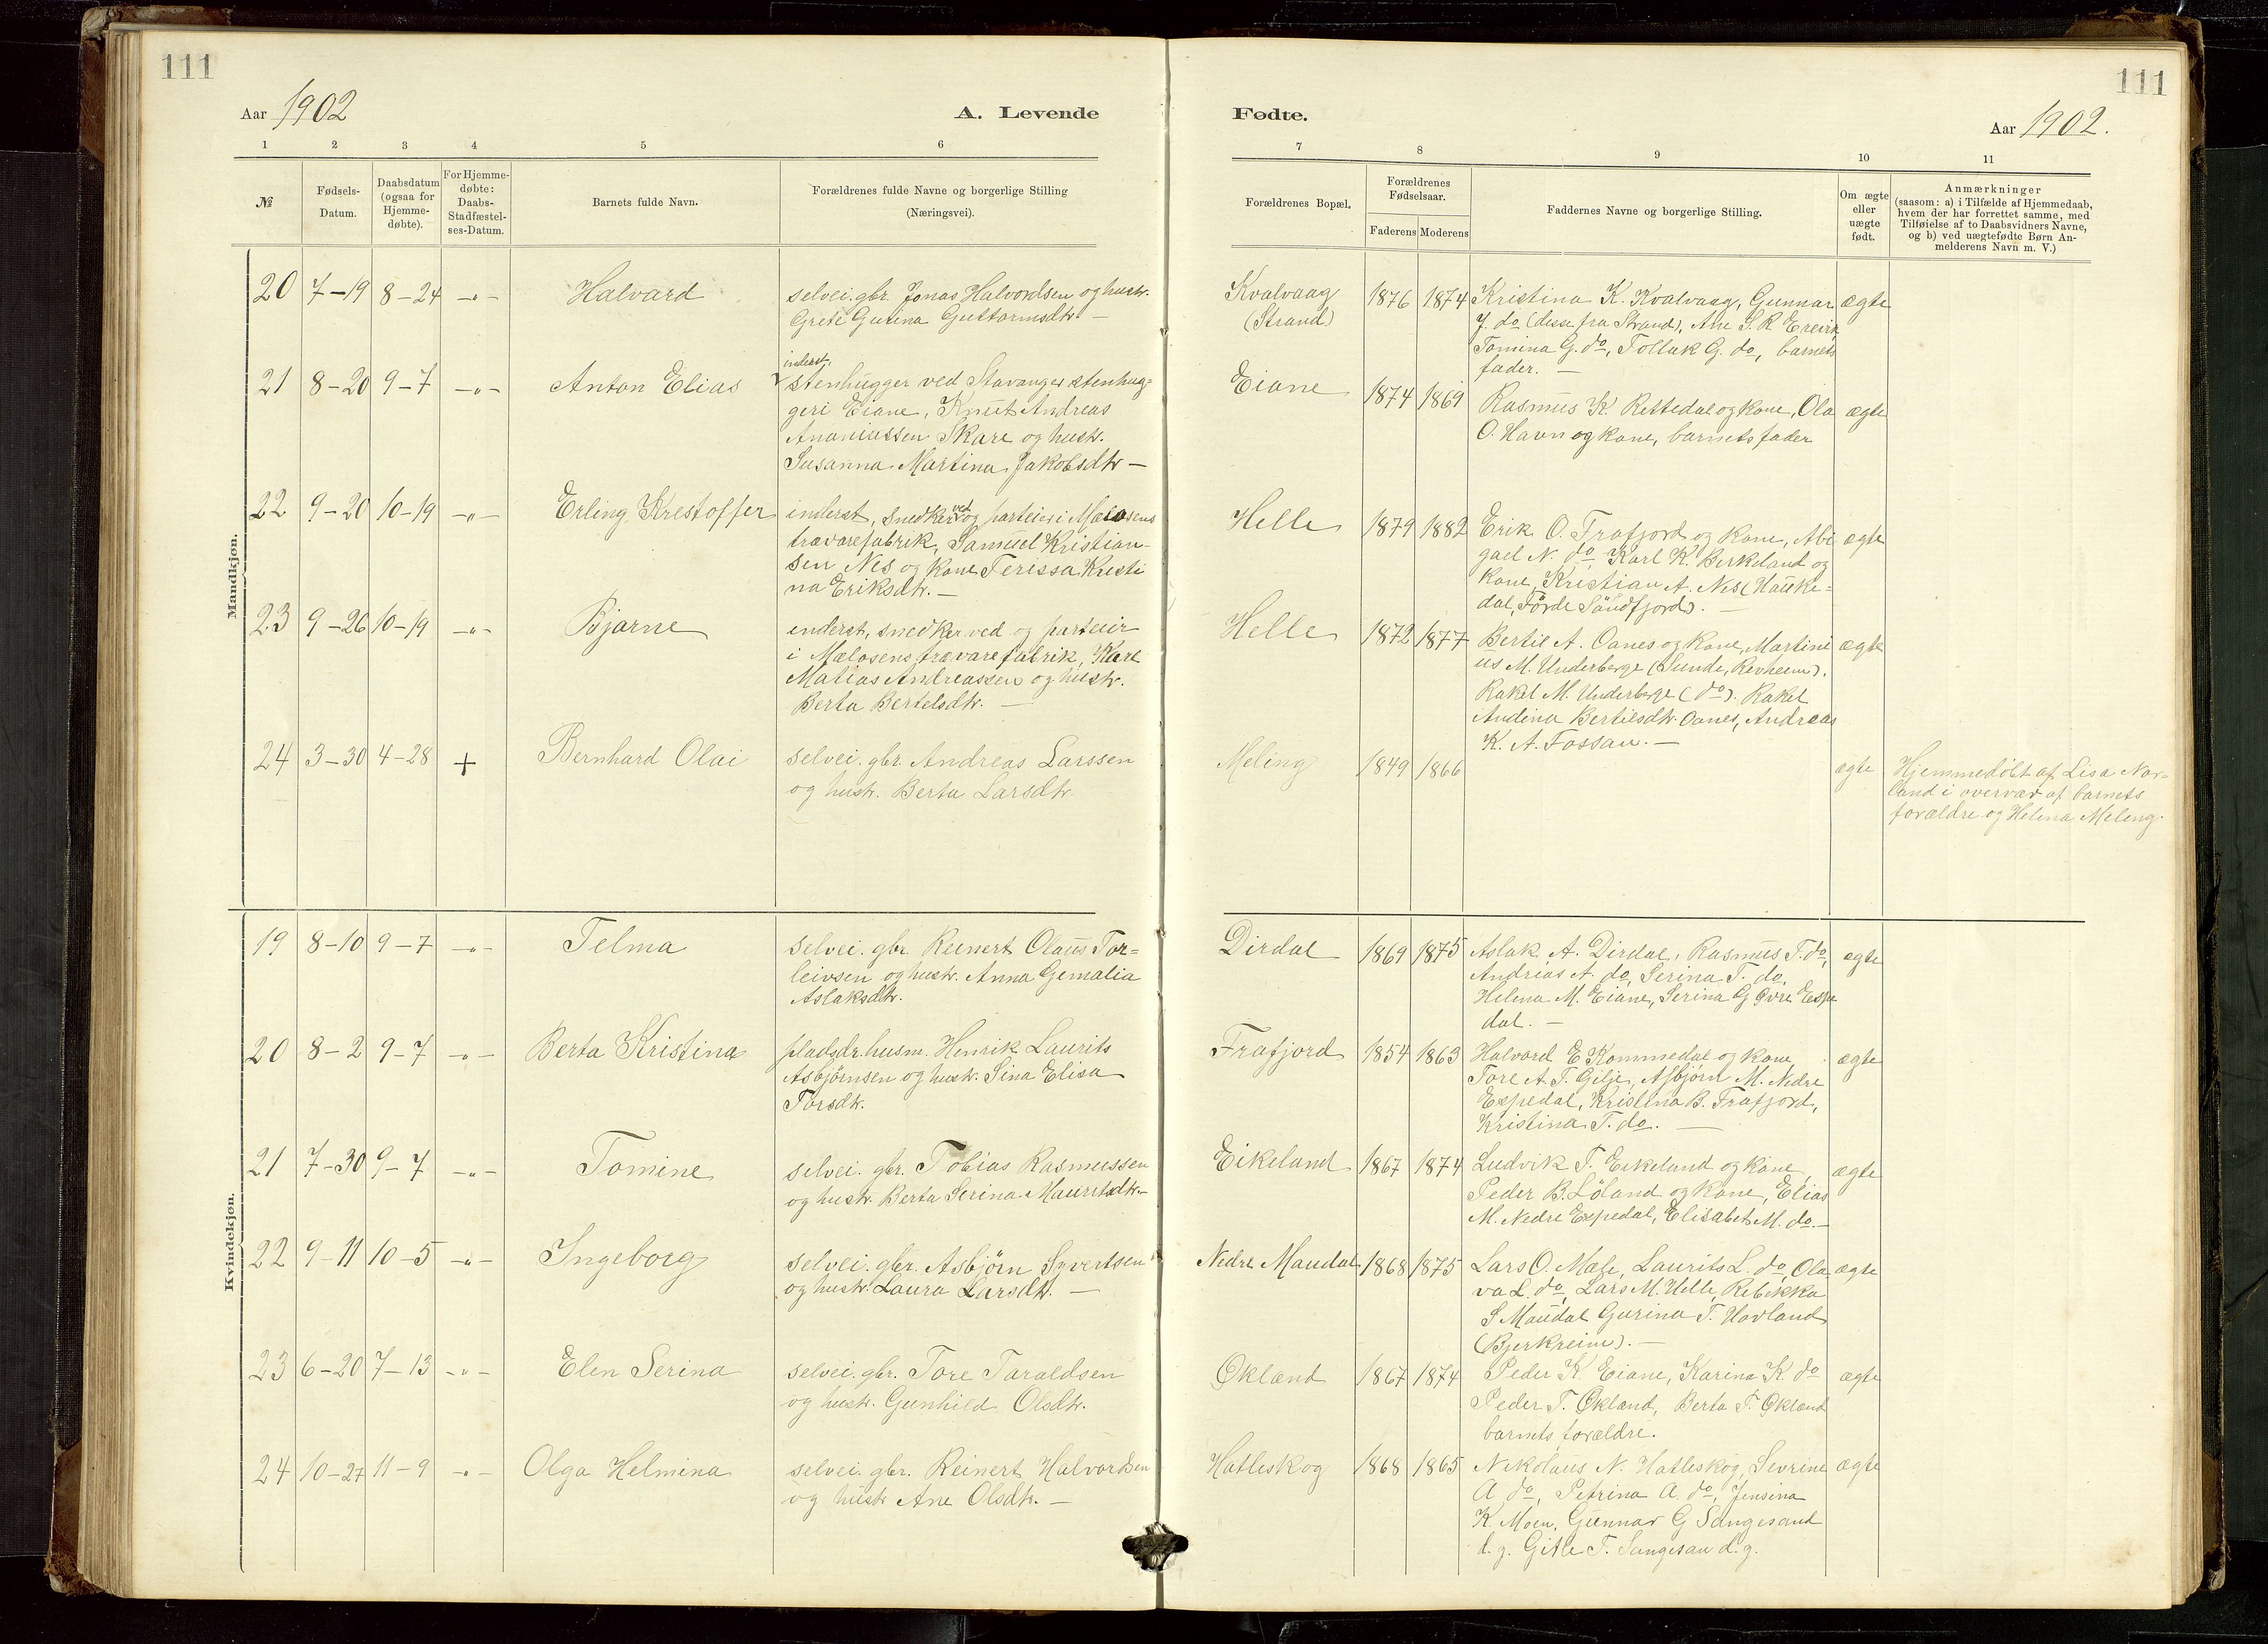 111
111
Aar 1902
A. Levende
Fødte.
Aar 1902.
1 2 3 4 5 6
7 8 9 10 11
№
Fødsels-Datum.
Daabsdatum (ogsaa for Hjemme-døbte).
For Hjemme-døbte: Daabs-Stadfæstel-ses-Datum.
Barnets fulde Navn.
Forældrenes fulde Navne og borgerlige Stilling
(Næringsvei).
Forældrenes Bopæl.
Forældrenes Fødselsaar.
Faderens Moderens
Faddernes Navne og borgerlige Stilling.
Om ægte eller uægte født.
Anmærkninger
(saasom: a) i Tilfælde af Hjemmedaab,
hvem der har forrettet samme, med
Tilføielse af to Daabsvidners Navne,
og b) ved uægtefødte Børn An-
melderens Navn m. V.)
Mandkjøn.
20 7-19 8-24 -"- Halvard
selvei. gbr. Jonas Halvordsen og hustr.
Grete Gurina Guttormsdtr. -
Kvalvaag
(Strand)
1876 1874
Kristina K. Kvalvaag, Gunnar
J. do (desse fra Strand), Ane S. R.
Tomina G. do, Tollak G. do, barnets
fader. -
ægte
21 8-20 9-7 -"- Anton Elias
inderst,
stenhugger ved Stavanger stenhug=
geri Eiane, Knut Andreas
Ananiassen Skare og hustr.
Susanna Martina Jakobsdtr -
Eiane
1874 1869
Rasmus K. Rettedal og kone, Ola
O. Havn og kone, barnets fader
ægte
22 9-20 10-19 -"- Erling Kristoffer
inderst, snedker ved og parteier i Mælosens
trævarefabrik, Samuel Kristian-
sen Nes og kone Teressa Kristi
na Eriksdtr. -
Helle
1879 1882
Erik O. Frafjord og kone, Abi
gael N. do Karl K. Berkeland og
kone, Kristian A. Nes (Hauke=
dal, Førde Söndfjord). -
ægte
23 9-26 10-19 -"- Bjarne
inderst, snedker ved og parteier
i Mælosens trævarefabrik, Karl
Matias Andreassen og hustr.
Berta Bertelsdtr. -
Helle
1872 1877
Bertil A. Oanes og kone, Martini
us M. Underberge (Sunde, Revheim).
Rakel M. Underberge (do). Rakel
Andina Bertilsdtr. Oanes, Andreas
K. A. Fossan. -
ægte
24 3-30 4-28 + Bernhard Olai
selvei. gbr. Andreas Larssen
og hustr. Berta Larsdtr.
Meling
1849 1866
ægte
Hjemmedöbt af Lisa Nor-
land i overvær af barnets
forældre og Helena Meling.
Kvindekjøn.
19 8-10 9-7 -"- Telma
selvei. gbr. Reinert Olaus Tor=
leivsen og hustr. Anna Gemalia
Aslaksdtr.
Dirdal
1869 1875
Aslak A. Dirdal, Rasmus T. do,
Andrias A. do, Serina T. do,
Helena M. Eiane, Serina G. Øvre Espe
dal. -
ægte
20 8-2 9-7 -"- Berta Kristina
pladsdr. husm. Henrik Laurits
Asbjørnsen og hustr. Sina Elisa
Torsdtr.
Frafjord
1854 1863
Halvard E Kommedal og kone,
Tore A. T. Gilje, Asbjörn M. Nedre
Espedal, Kristina B. Frafjord,
Kristina T. do. -
ægte
21 7-30 9-7 -"- Tomine
selvei. gbr. Tobias Rasmussen
og hustr. Berta Serina Mauritsdtr.-
Eikeland
1867 1874
Ludvik T. Eikeland og kone,
Peder B. Löland og kone, Elias
M. Nedre Espedal, Elisabet M. do.-
ægte
22 9-11 10-5 -"- Ingeborg
selvei. gbr. Asbjörn Syvertsen
og hustr. Laura Larsdtr. -
Nedre Maudal
1868 1875
Lars O. Mæle, Laurits L. do, Ola
va L. do, Lars M. Helle, Rebekka
S Maudal Gurina T. Havland
(Bjerkreim). -
ægte
23 6-20 7-13 -"- Elen Serina
selvei. gbr. Tore Taraldsen
og hustr. Gunhild Olsdtr.
Økland
1867 1874
Peder K. Eiane, Karina K. do
Peder T. Økland, Berta T. Økland
barnets forældre.
ægte
24 10-27 11-9 -"- Olga Helmina
selvei. gbr. Reinert Halvordsen
og hustr Ane Olsdtr. -
Hatleskog
1868 1865
Nikolaus N. Hatleskog, Sevrine
A. do, Petrina A. do, Jensina
K. Moen, Gunnar G Sangesand
d. g. Gitle T. Sangesan d. g.
ægte